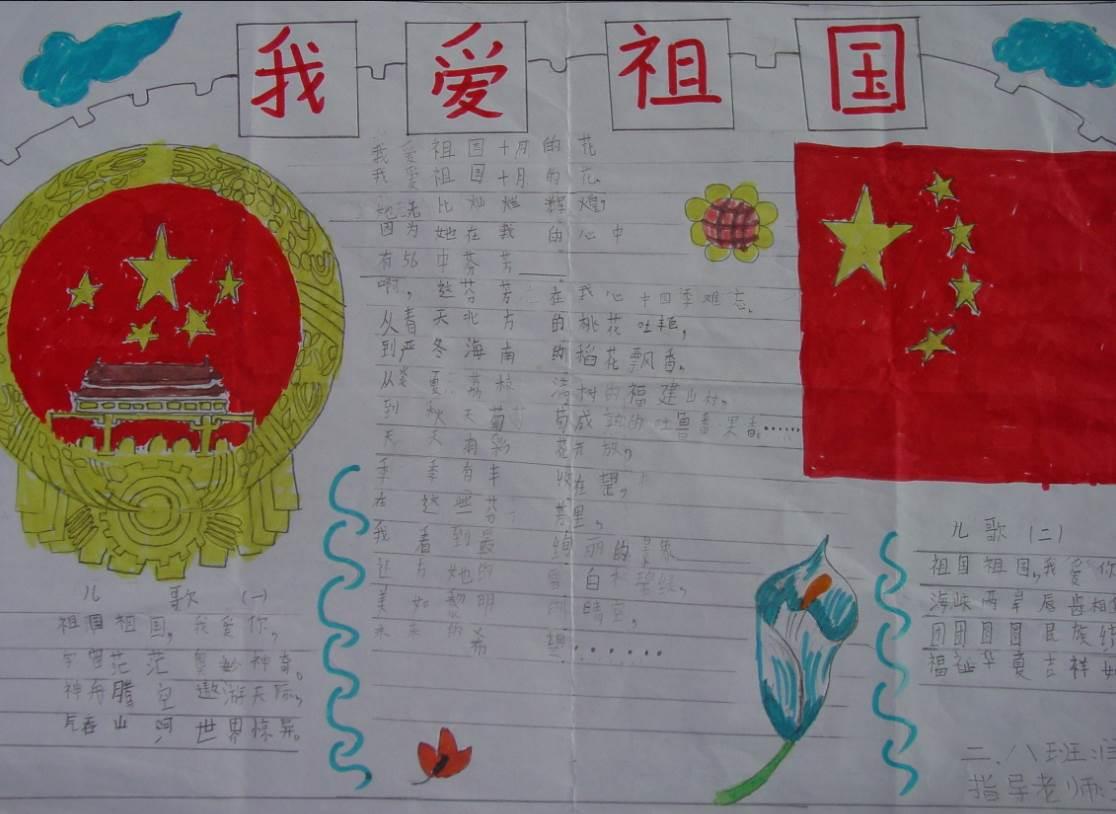 我爱祖国
我爱祖国十月的花
我爱祖国十月的花
她 比灿烂辉煌,
因为她在我的心中
有56中芬芳
啊,这芬芳在我心中四季难忘。
从春天北方的桃花吐艳,
到严冬海南的稻花飘香。
从 夏荔枝满树的福建山村,
到秋天葡萄成 的吐鲁番果香。……
天天有彩花开放,
季季有丰收在望,
在这些芬芳里,
我看到最绚丽的景象
白 碧绿,
美如黎明的晴空,
未来的希望......
儿歌(一)
祖国祖国,我爱你,
宇宙茫茫奥妙神奇。
神舟腾空遨游天际,
气吞山河世界惊异。
儿歌(二)
祖国祖国,我爱你
海峡两岸唇齿相
团团圆圆民族
福祉华夏吉祥如
二.八班
指导老师: